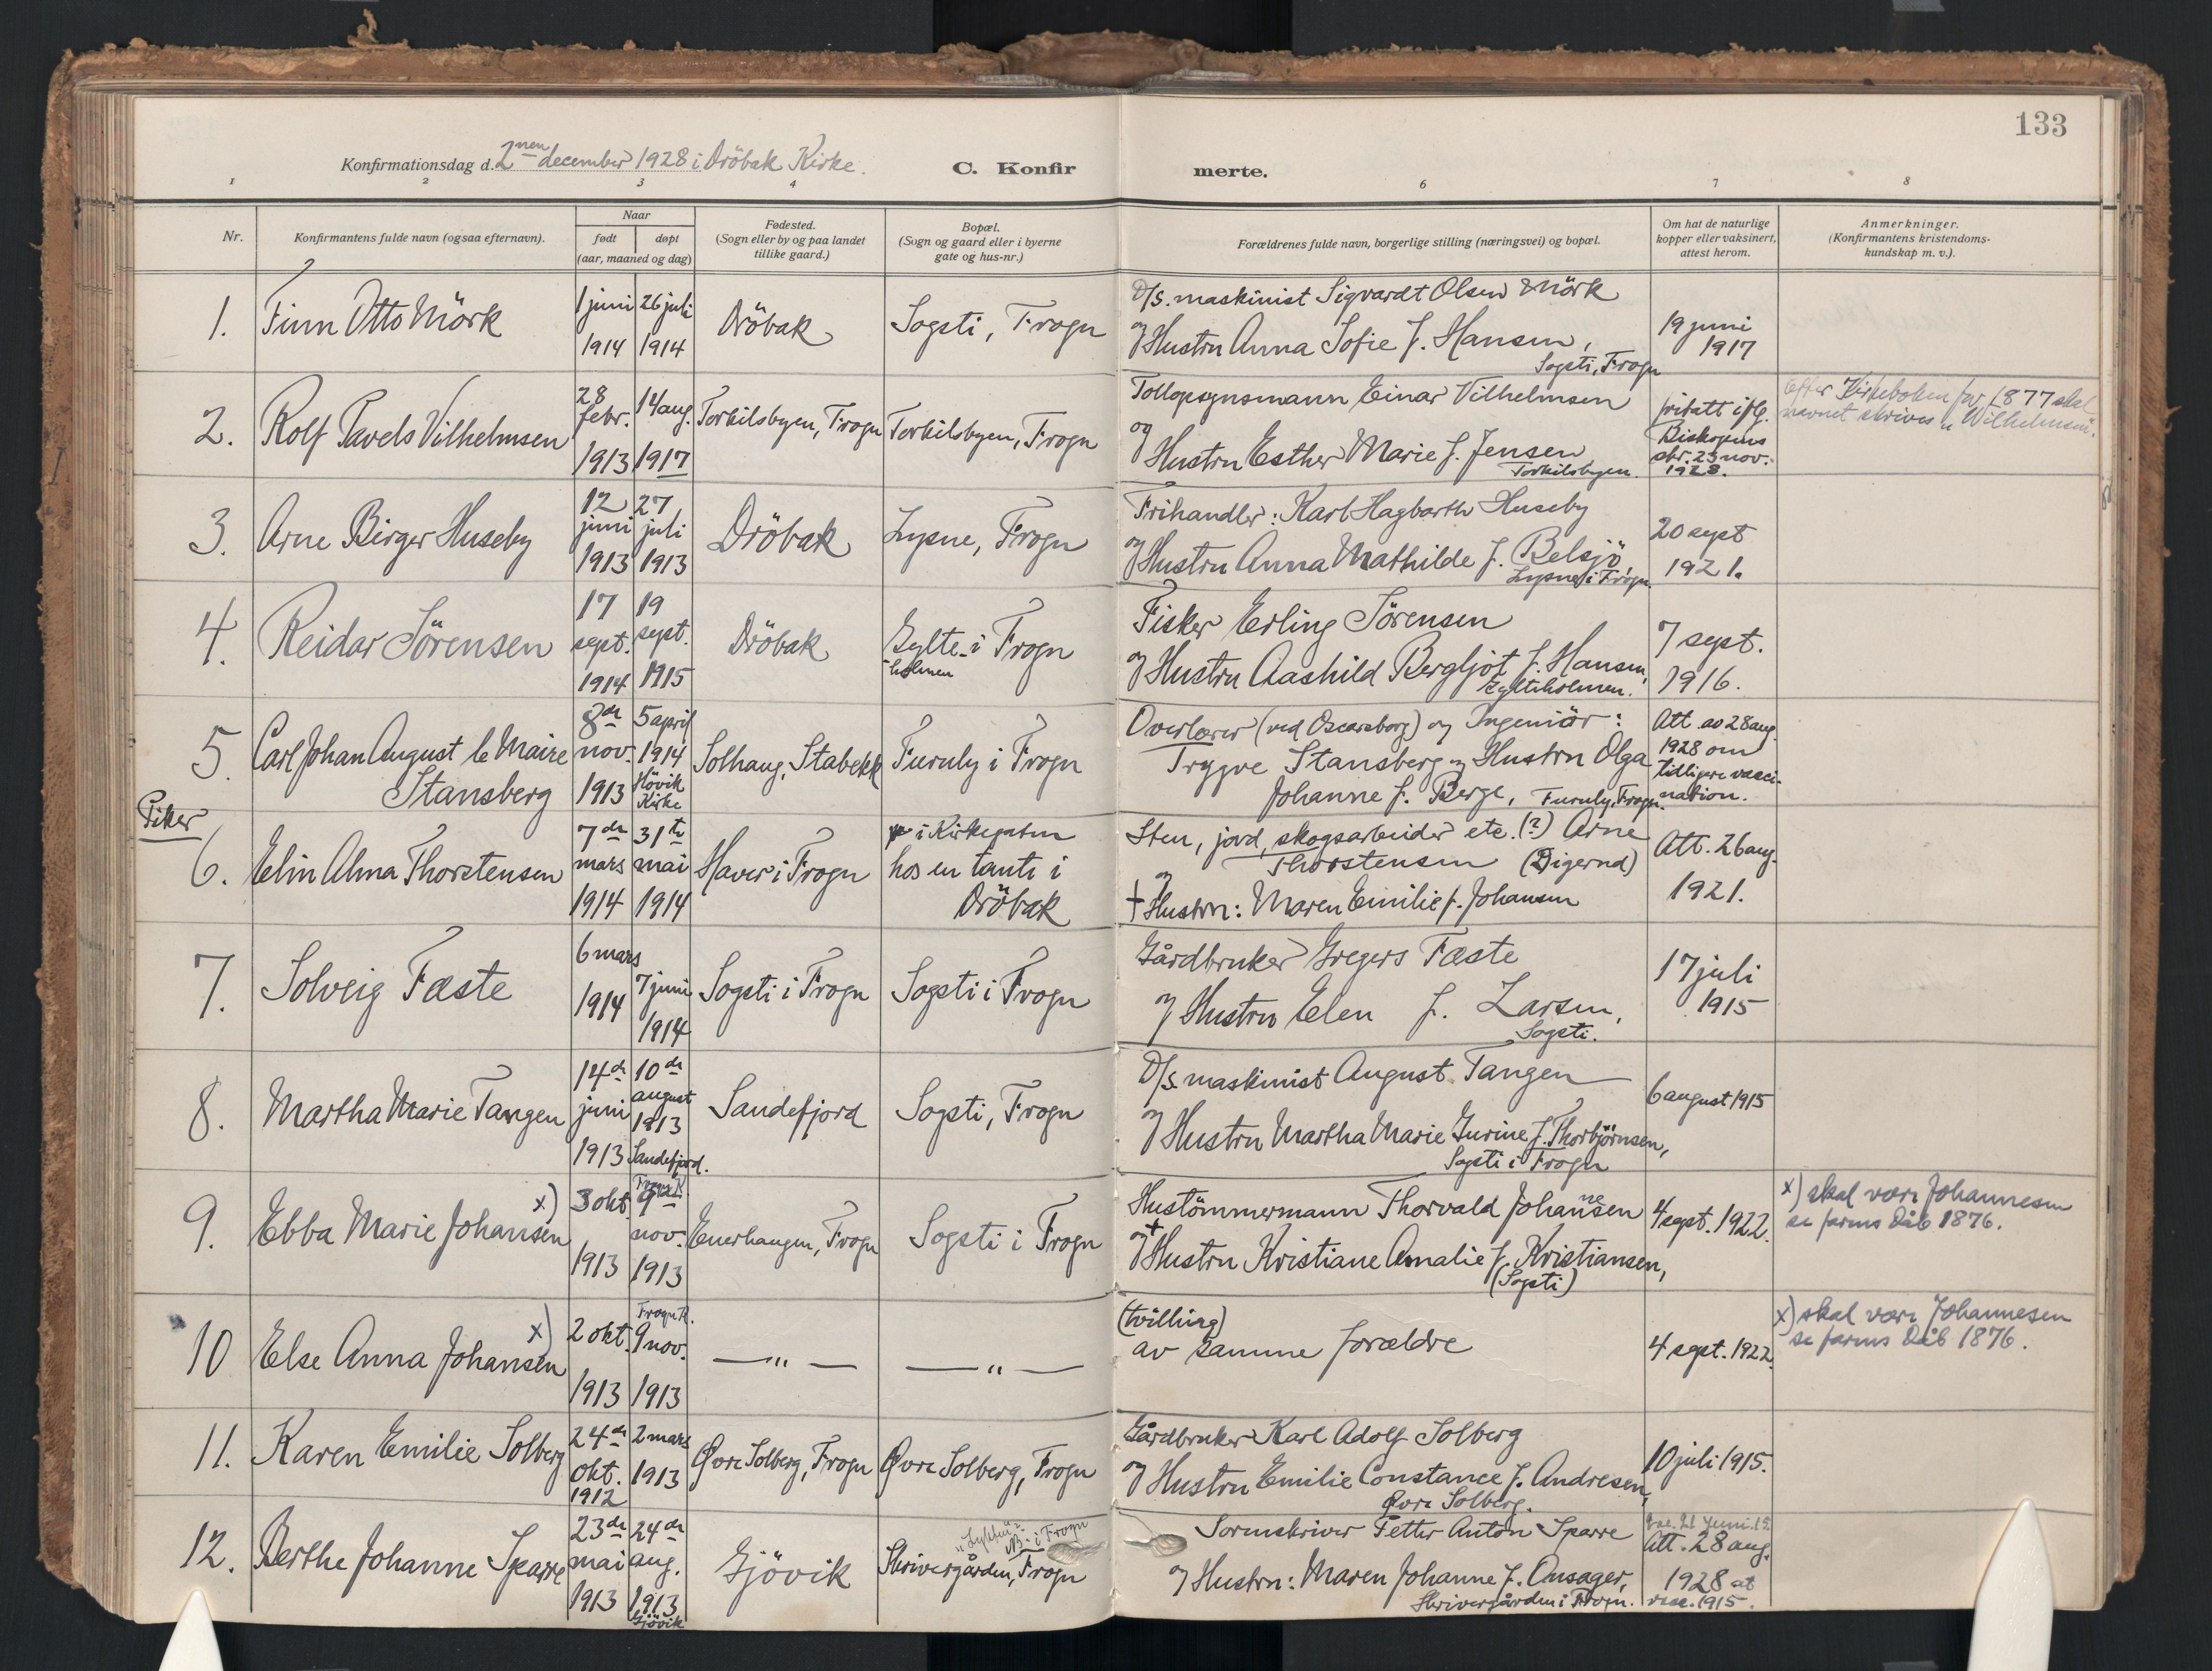 133
Konfirmationsdag d. 2nen december 1928 i Dröbak Kirke.
C. Konfirmerte.
1 2 3 4 6 7 8
Nr.
Konfirmantens fulde navn (ogsaa efternavn).
Naar
født døpt
(aar, maaned og dag)
Fødested.
(Sogn eller by og paa landet
tillike gaard.)
Bopæl.
(Sogn og gaard eller i byerne
gate og hus-nr.)
Forældrenes fulde navn, borgerlige stilling (næringsvei) og bopæl.
Om hat de naturlige
kopper eller vaksinert,
attest herom.
Anmerkninger.
(Konfirmantens kristendoms-
kundskap m. v.).
1.
Finn Otto Mörk
1 juni
1914
26 juli
1914
Dröbak
Sogsti, Frogn
D/s. maskinist Sigvardt Olsen Mörk
og Hustru Anna Sofie f. Hansen,
Sogsti, Frogn
19 juni
1917
2.
Rolf Pavels Vilhelmsen
28
febr.
1913
14 aug.
1917
Torkilsbyen, Frogn
Torkilsbyen, Frogn
Tollopsynsmann Einar Vilhelmsen
og
Hustru Esther Marie f. Jensen
Torkilsbyen.
fritatt iflg.
Biskopens
skr. 23 nov.
1928.
Efter Kirkeboken for 1877 skal
navnet skrives Wilhelmsen.
3.
Arne Birger Huseby
12
juni
1913
27
juli
1913
Dröbak
Lysne, Frogn
Frihandler: Karl Hagbarth Huseby
og Hustru Anna Mathilde f. Belsjö,
Lysne i Frogn
20 sept
1921.
4.
Reidar Sörensen
17
sept.
1914
19
sept.
1915
Dröbak
Gylte- i Frogn
holmen
Fisker Erling Sörensen
og Hustru Aashild Bergljot f. Hansen,
Gylteholmen.
7 sept.
1916.
5.
Carl Johan August le Maire
Stansberg
8de
nov.
1913
5 april
1914
Hövik
Kirke
Solhaug, Stabekk
Furuly i Frogn
Overlærer (ved Oscarsborg) og Ingeniör:
Trygve Stansberg og Hustru Olga
Johanne f. Berge, Furuly, Frogn.
Att. av 28 aug.
1928 om
tidligere vacci-
nation.
Piker
6.
Elin Alma Thorstensen
7de
mars
1914
31te
mai
1914
Haver i Frogn
i Kirkegaten
hos en tante i
Dröbak
Sten, jord, skogsarbeider etc. (?) Arne
Thorstensen (Digerud)
og
† Hustru: Maren Emilie f. Johansen
Att. 26 aug.
1921.
7.
Solveig Fæste
6 mars
1914
7 juni
1914
Sogsti i Frogn
Sogsti i Frogn
Gårdbruker Gregers Fæste
og Hustru Elen f. Larsen,
Sogsti.
17 juli
1915
8.
Martha Marie Tangen
14de
juni
1913
10de
august
1913
Sandefjord.
Sandefjord
Sogsti, Frogn
D/s. maskinist August Tangen
og Hustru Martha Marie Gurine f. Thorbjörnsen,
Sogsti i Frogn
6 august 1915
9.
Ebba Marie Johansen x)
3 okt.
1913
Frogn K.
9de
nov.
1913
Enerhaugen, Frogn
Sogsti i Frogn
Hustömmermann Thorvald Johannesen
og † Hustru Kristiane Amalie f. Kristiansen,
(Sogsti)
4 sept. 1922.
x) skal være Johannesen
se farens dåb 1876.
10
Else Anna Johansen x)
2 okt.
1913
Frogn K.
9 nov.
1913
— " —
— " —
(tvilling)
av samme forældre
4 sept. 1922.
x) skal være Johannesen
se farens dåb 1876.
11.
Karen Emilie Solberg
24de
okt.
1912
2 mars
1913
Øvre Solberg, Frogn
Øvre Solberg, Frogn
Gårdbruker Karl Adolf Solberg
og Hustru Emilie Constance f. Andresen,
Øvre Solberg.
10 juli 1915.
12.
Berthe Johanne Sparre
23de
mai
1913
24de
aug.
1913
Gjövik
Gjövik
i Frogn
Skrivergården, Frogn
Sorenskriver Petter Anton Sparre
og Hustru: Maren Johanne f. Onsager,
Skrivergården i Frogn.
vac. 21 juni 15
Att. 28 aug.
1928 at
vacc. 1915.